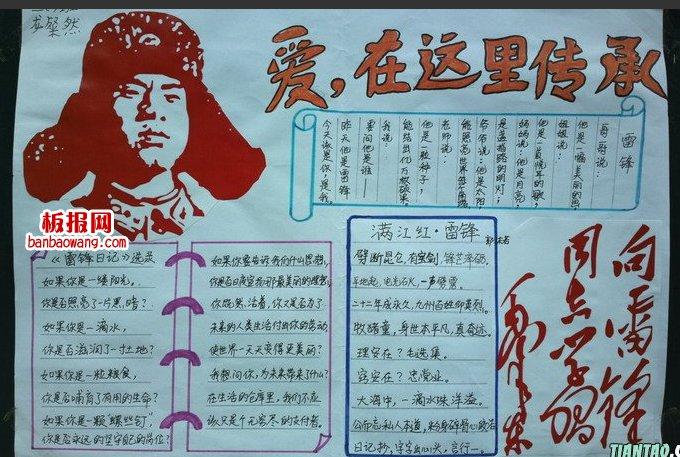 龙粲然
爱，在这里传承
雷锋
哥哥说：
他是一幅美丽的画
姐姐说：
他是一首悦耳的歌，
妈妈说：他是月亮，
是盏指路的明灯；
爷爷说：他是太阳
能照亮世界每个角落
老师说：
他是一粒种子，
能结出亿万颗硕果。
我说：
要问他是谁——
昨天他是雷锋
今天该是你，是我，
板报网
banbaowang.com
《雷锋日记》选录
如果你是一缕阳光，
你是否照亮了一片黑暗？
如果你是一滴水，
你是否滋润了一寸土地？
如果你是一粒粮食，
你是否哺育了有用的生命？
如果你是一颗"螺丝钉"，
你是否永远的坚守你的岗位？
如果你要告诉我们什么思想，
你是否日夜宣扬那最美丽的理想？
你既然活着，你又是否为了
未来的人类生活付出你的劳动，
使世界一天天变得更美丽？
我想问你，为未来带来了什么？
在生活的仓库里，我们不应
该只是个无穷尽的支付者。
满江红·雷锋
郭沫若
劈断昆仑，有宝剑，锋芒淬砺。
平地起，电光石火，一声霹雳。
二十二年成永久，九州百姓仰英烈。
牧猪童，身世本平凡，真奇迹。
理安在？毛选集。
实安在？忠党业。
大海中，一滴水珠洋溢。
公而忘私人本道，粉身碎骨心政洁
日记抄，字字出心头，言行一。
向雷锋
同志学习
毛泽东
TIANTAO.C